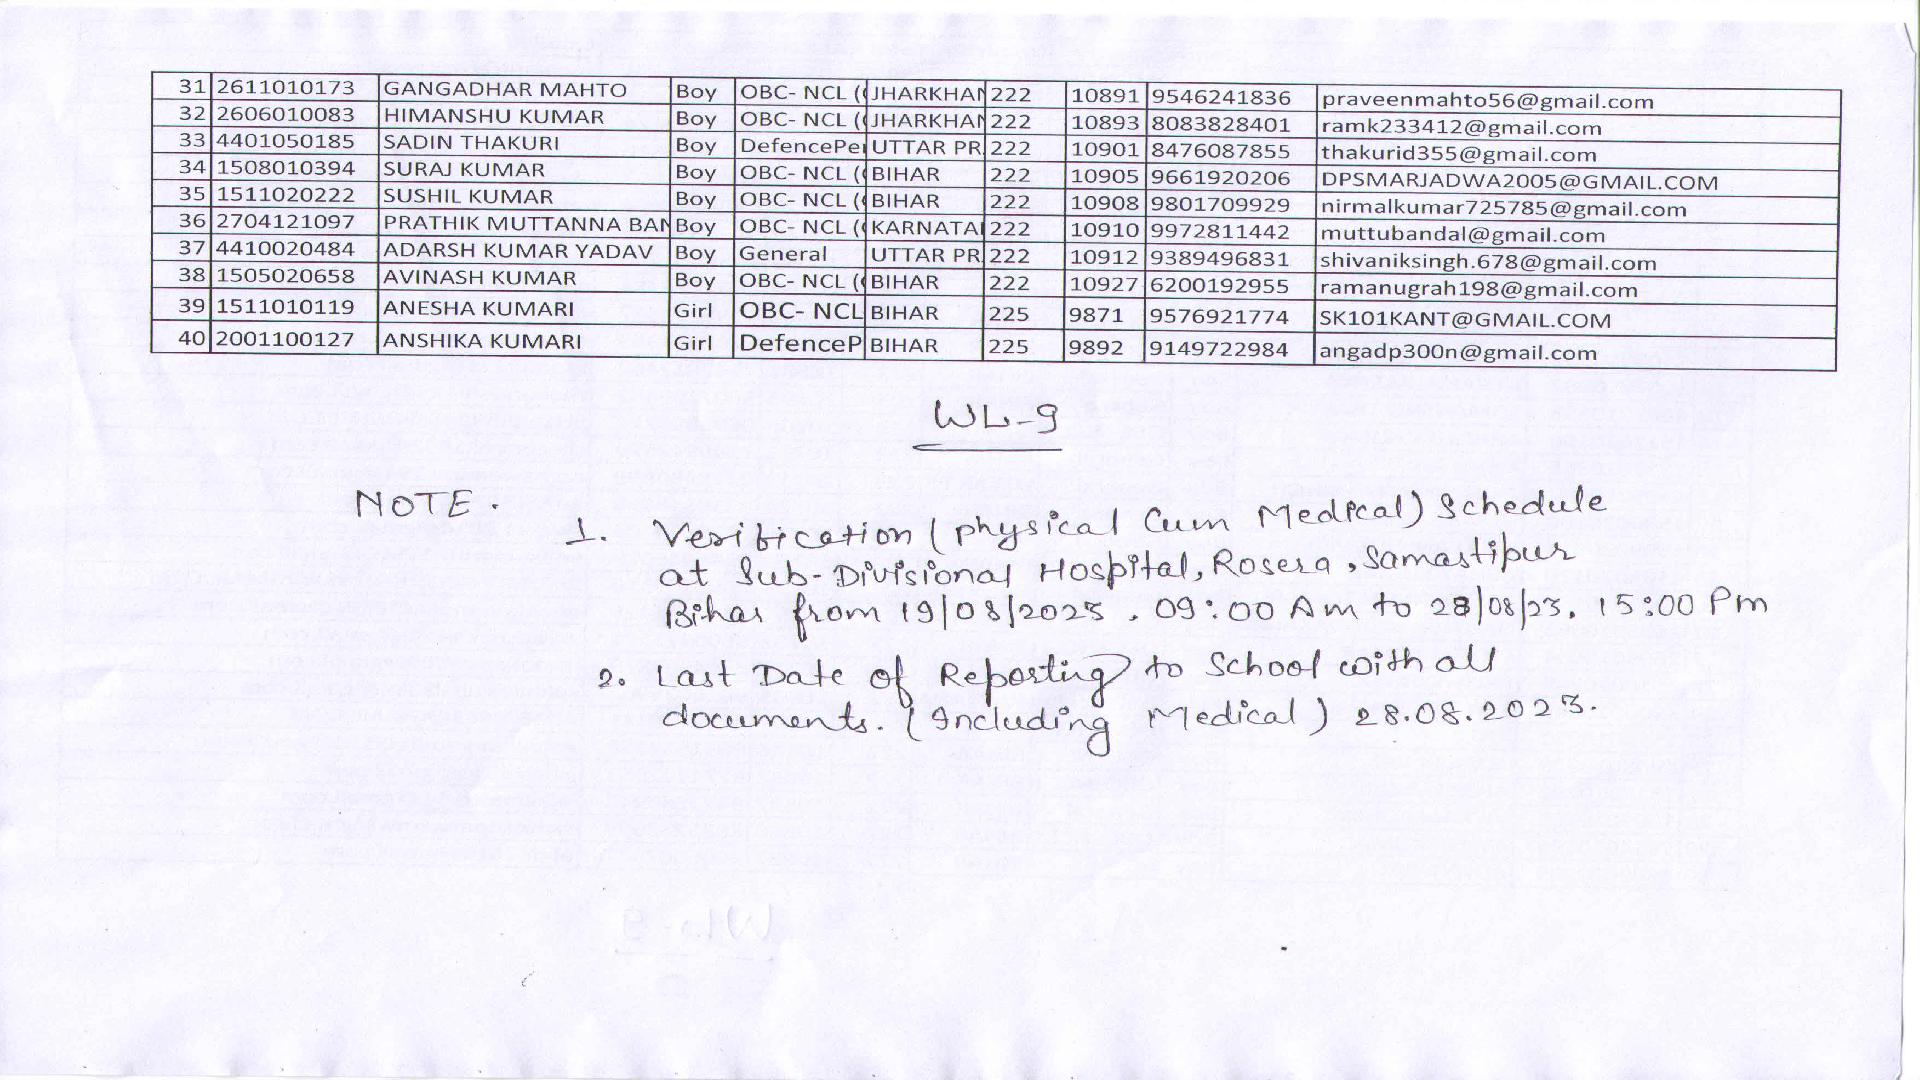 31 2611010173 GANGADHAR MAHTO Boy OBC- NCL (C JHARKHAN 222 10891 9546241836 praveenmahto56@gmail.com
32 2606010083 HIMANSHU KUMAR Boy OBC- NCL (C JHARKHAN 222 10893 8083828401 ramk233412@gmail.com
33 4401050185 SADIN THAKURI Boy DefencePer UTTAR PR 222 10901 8476087855 thakurid355@gmail.com
34 1508010394 SURAJ KUMAR Boy OBC- NCL (C BIHAR 222 10905 9661920206 DPSMARJADWA2005@GMAIL.COM
35 1511020222 SUSHIL KUMAR Boy OBC- NCL (C BIHAR 222 10908 9801709929 nirmalkumar725785@gmail.com
36 2704121097 PRATHIK MUTTANNA BAN Boy OBC- NCL (C KARNATAK 222 10910 9972811442 muttubandal@gmail.com
37 4410020484 ADARSH KUMAR YADAV Boy General UTTAR PR 222 10912 9389496831 shivaniksingh.678@gmail.com
38 1505020658 AVINASH KUMAR Boy OBC- NCL (C BIHAR 222 10927 6200192955 ramanugrah198@gmail.com
39 1511010119 ANESHA KUMARI Girl OBC- NCL BIHAR 225 9871 9576921774 SK101KANT@GMAIL.COM
40 2001100127 ANSHIKA KUMARI Girl DefenceP BIHAR 225 9892 9149722984 angadp300n@gmail.com
WL-9
NOTE.
1. Verification (physical Cum Medical) Schedule
at Sub-Divisional Hospital, Rosera, Samastipur
Bihar from 19/08/2023, 09:00 Am to 28/08/23, 15:00 Pm
2. Last Date of Reporting to School with all
documents. (Including Medical) 28.08.2023.